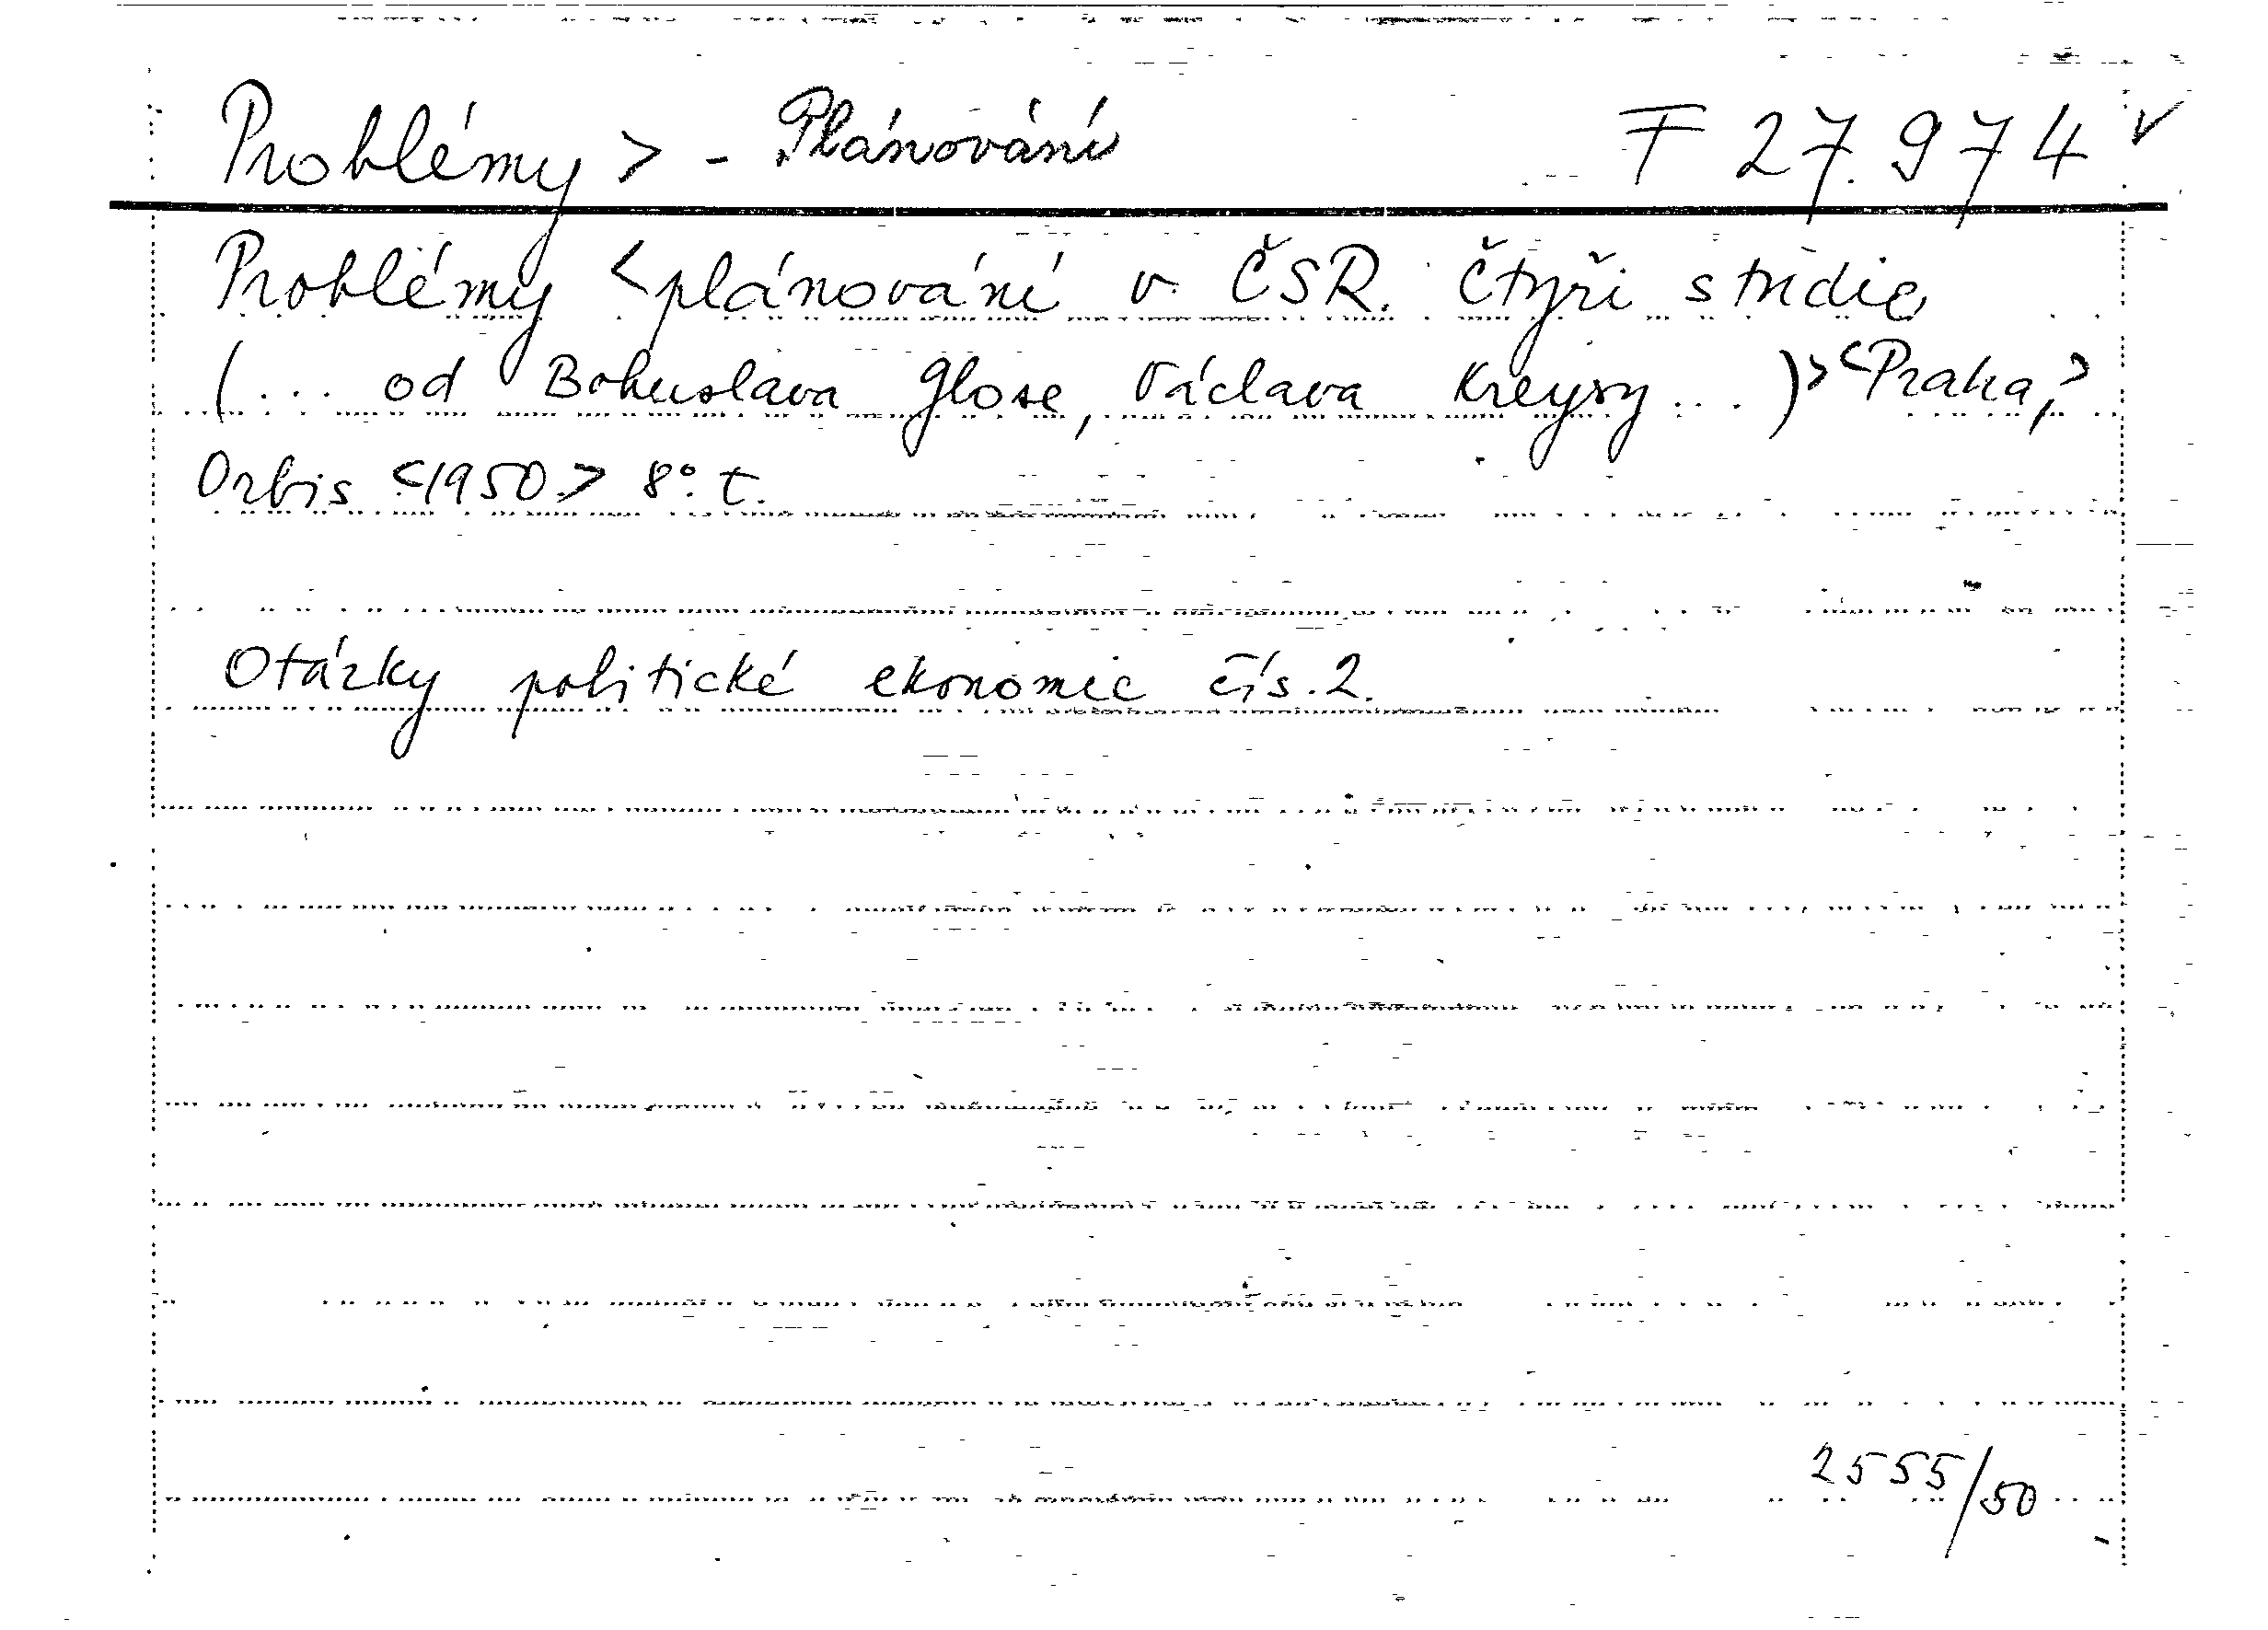 Problémy > - Plánování F 27.974 v
Problémy < plánování v ČSR. Čtyři studie
(... od Bohuslava Glose, Václava Kreysy...)> <Praha,>
Orbis <1950> 8°. t.
Otázky politické ekonomie čís. 2.
2555/50